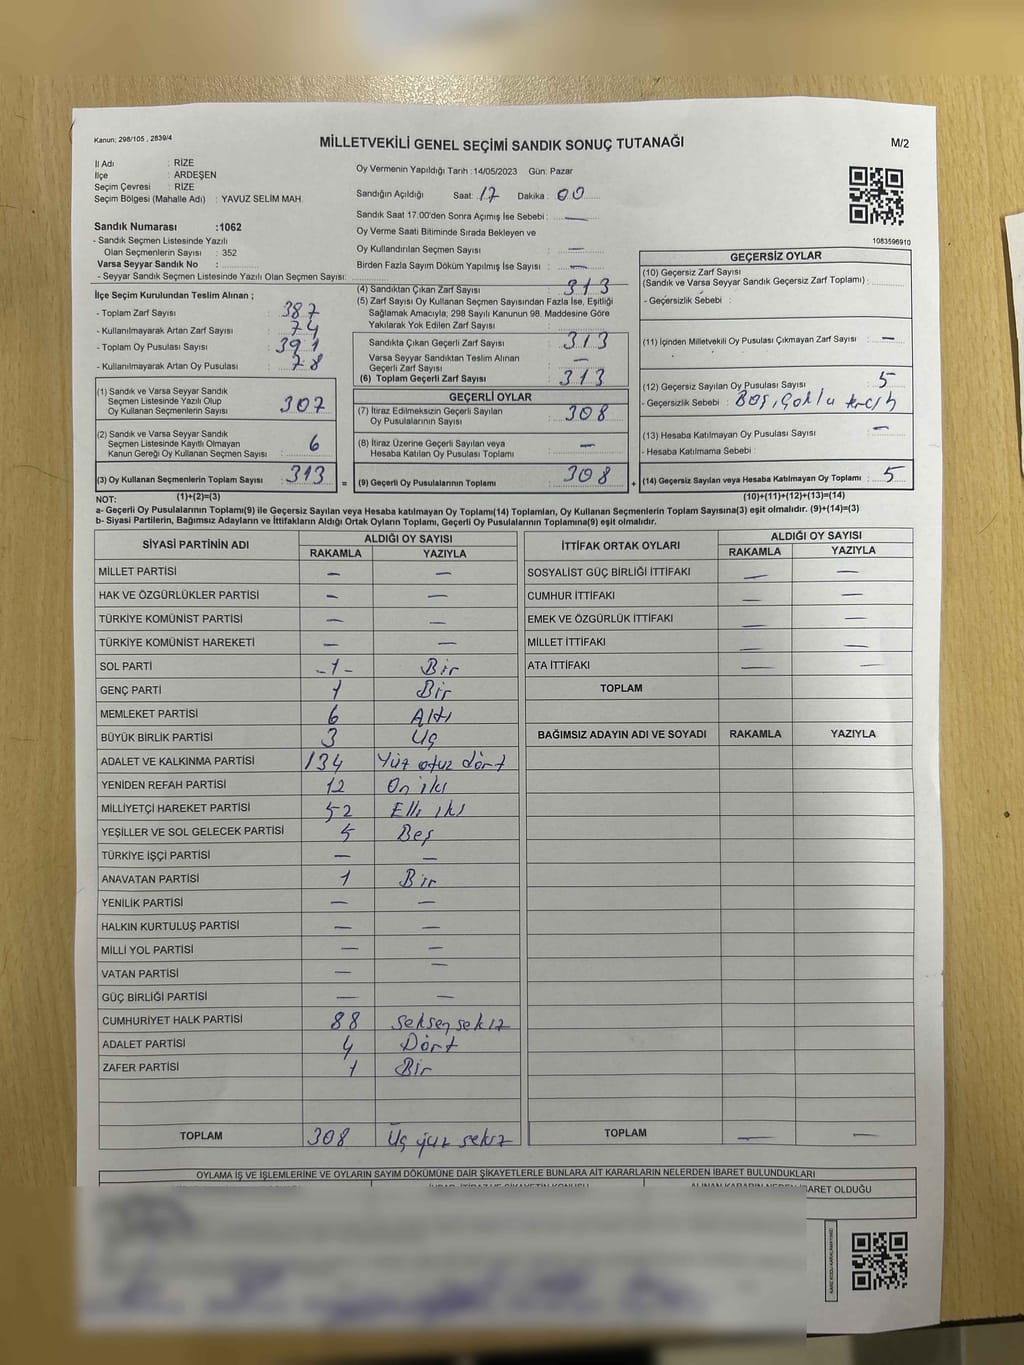 Kanun; 298/105 , 2839/4
MİLLETVEKİLİ GENEL SEÇİMİ SANDIK SONUÇ TUTANAĞI
M/2
İl Adı : RİZE
İlçe : ARDEŞEN
Seçim Çevresi : RİZE
Seçim Bölgesi (Mahalle Adı) : YAVUZ SELİM MAH.
Oy Vermenin Yapıldığı Tarih :14/05/2023 Gün: Pazar
Sandığın Açıldığı Saat: 17 Dakika : 00
Sandık Saat 17.00'den Sonra Açımış İse Sebebi : —
Oy Verme Saati Bitiminde Sırada Bekleyen ve
Oy Kullandırılan Seçmen Sayısı : —
Birden Fazla Sayım Döküm Yapılmış İse Sayısı : —
1083596910
Sandık Numarası :1062
- Sandık Seçmen Listesinde Yazılı
Olan Seçmenlerin Sayısı : 352
Varsa Seyyar Sandık No :
- Seyyar Sandık Seçmen Listesinde Yazılı Olan Seçmen Sayısı:
İlçe Seçim Kurulundan Teslim Alınan ;
- Toplam Zarf Sayısı : 387
- Kullanılmayarak Artan Zarf Sayısı : 74
- Toplam Oy Pusulası Sayısı : 391
- Kullanılmayarak Artan Oy Pusulası : 78
(1) Sandık ve Varsa Seyyar Sandık
Seçmen Listesinde Yazılı Olup
Oy Kullanan Seçmenlerin Sayısı : 307
(2) Sandık ve Varsa Seyyar Sandık
Seçmen Listesinde Kayıtlı Olmayan
Kanun Gereği Oy Kullanan Seçmen Sayısı : 6
(3) Oy Kullanan Seçmenlerin Toplam Sayısı : 313
(4) Sandıktan Çıkan Zarf Sayısı : 313
(5) Zarf Sayısı Oy Kullanan Seçmen Sayısından Fazla İse, Eşitliği
Sağlamak Amacıyla; 298 Sayılı Kanunun 98. Maddesine Göre
Yakılarak Yok Edilen Zarf Sayısı :
Sandıkta Çıkan Geçerli Zarf Sayısı : 313
Varsa Seyyar Sandıktan Teslim Alınan
Geçerli Zarf Sayısı : —
(6) Toplam Geçerli Zarf Sayısı : 313
GEÇERLİ OYLAR
(7) İtiraz Edilmeksizin Geçerli Sayılan
Oy Pusulalarının Sayısı : 308
(8) İtiraz Üzerine Geçerli Sayılan veya
Hesaba Katılan Oy Pusulası Toplamı : —
= (9) Geçerli Oy Pusulalarının Toplamı : 308 +
GEÇERSİZ OYLAR
(10) Geçersiz Zarf Sayısı
(Sandık ve Varsa Seyyar Sandık Geçersiz Zarf Toplamı) :
- Geçersizlik Sebebi :
(11) İçinden Milletvekili Oy Pusulası Çıkmayan Zarf Sayısı : —
(12) Geçersiz Sayılan Oy Pusulası Sayısı : 5
- Geçersizlik Sebebi : Boş, Çoklu
(13) Hesaba Katılmayan Oy Pusulası Sayısı : —
- Hesaba Katılmama Sebebi :
(14) Geçersiz Sayılan veya Hesaba Katılmayan Oy Toplamı : 5
NOT: (1)+(2)=(3) (10)+(11)+(12)+(13)=(14)
a- Geçerli Oy Pusulalarının Toplamı(9) ile Geçersiz Sayılan veya Hesaba katılmayan Oy Toplamı(14) Toplamları, Oy Kullanan Seçmenlerin Toplam Sayısına(3) eşit olmalıdır. (9)+(14)=(3)
b- Siyasi Partilerin, Bağımsız Adayların ve İttifakların Aldığı Ortak Oyların Toplamı, Geçerli Oy Pusulalarının Toplamına(9) eşit olmalıdır.
SİYASİ PARTİNİN ADI ALDIĞI OY SAYISI
RAKAMLA YAZIYLA
MİLLET PARTİSİ — —
HAK VE ÖZGÜRLÜKLER PARTİSİ — —
TÜRKİYE KOMÜNİST PARTİSİ — —
TÜRKİYE KOMÜNİST HAREKETİ — —
SOL PARTİ -1- Bir
GENÇ PARTİ 1 Bir
MEMLEKET PARTİSİ 6 Altı
BÜYÜK BİRLİK PARTİSİ 3 Üç
ADALET VE KALKINMA PARTİSİ 134 Yüz otuz dört
YENİDEN REFAH PARTİSİ 12 On iki
MİLLİYETÇİ HAREKET PARTİSİ 52 Elli iki
YEŞİLLER VE SOL GELECEK PARTİSİ 5 Beş
TÜRKİYE İŞÇİ PARTİSİ — —
ANAVATAN PARTİSİ 1 Bir
YENİLİK PARTİSİ — —
HALKIN KURTULUŞ PARTİSİ — —
MİLLİ YOL PARTİSİ — —
VATAN PARTİSİ — —
GÜÇ BİRLİĞİ PARTİSİ — —
CUMHURİYET HALK PARTİSİ 88 Seksen sekiz
ADALET PARTİSİ 4 Dört
ZAFER PARTİSİ 1 Bir
TOPLAM 308 Üç yüz sekiz
İTTİFAK ORTAK OYLARI ALDIĞI OY SAYISI
RAKAMLA YAZIYLA
SOSYALİST GÜÇ BİRLİĞİ İTTİFAKI — —
CUMHUR İTTİFAKI — —
EMEK VE ÖZGÜRLÜK İTTİFAKI — —
MİLLET İTTİFAKI — —
ATA İTTİFAKI — —
TOPLAM
BAĞIMSIZ ADAYIN ADI VE SOYADI RAKAMLA YAZIYLA
TOPLAM — —
OYLAMA İŞ VE İŞLEMLERİNE VE OYLARIN SAYIM DÖKÜMÜNE DAİR ŞİKAYETLERLE BUNLARA AİT KARARLARIN NELERDEN İBARET BULUNDUKLARI
İHBAR, İTİRAZ VE ŞİKAYETİN KONUSU ALINAN KARARIN NEDEN İBARET OLDUĞU